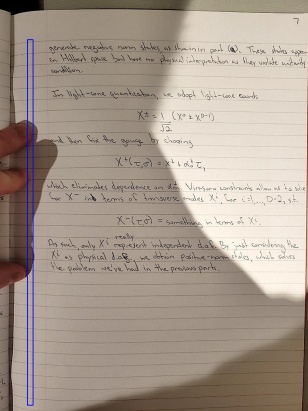 7
generate negative norm states as shown in part (a). These states appear
in Hilbert space but have no physical interpretation as they violate unitarity
condition.
In light-cone quantization, we adopt light-cone coords
X± = 1/√2 (X⁰ ± X^{D-1})
and then fix the gauge by choosing
X⁺(τ,σ) = x⁺ + α₀⁺ τ,
which eliminates dependence on Virasoro constraints allow us to solve
for X⁻ in terms of transverse modes Xⁱ, for i=1,..., D-2, s.t.
X⁻(τ,σ) = something in terms of Xⁱ.
really
As such, only Xⁱ represent independent d.o.f. By just considering the
Xⁱ as physical d.o.f., we obtain positive-norm states, which solves
the problem we've had in the previous parts.